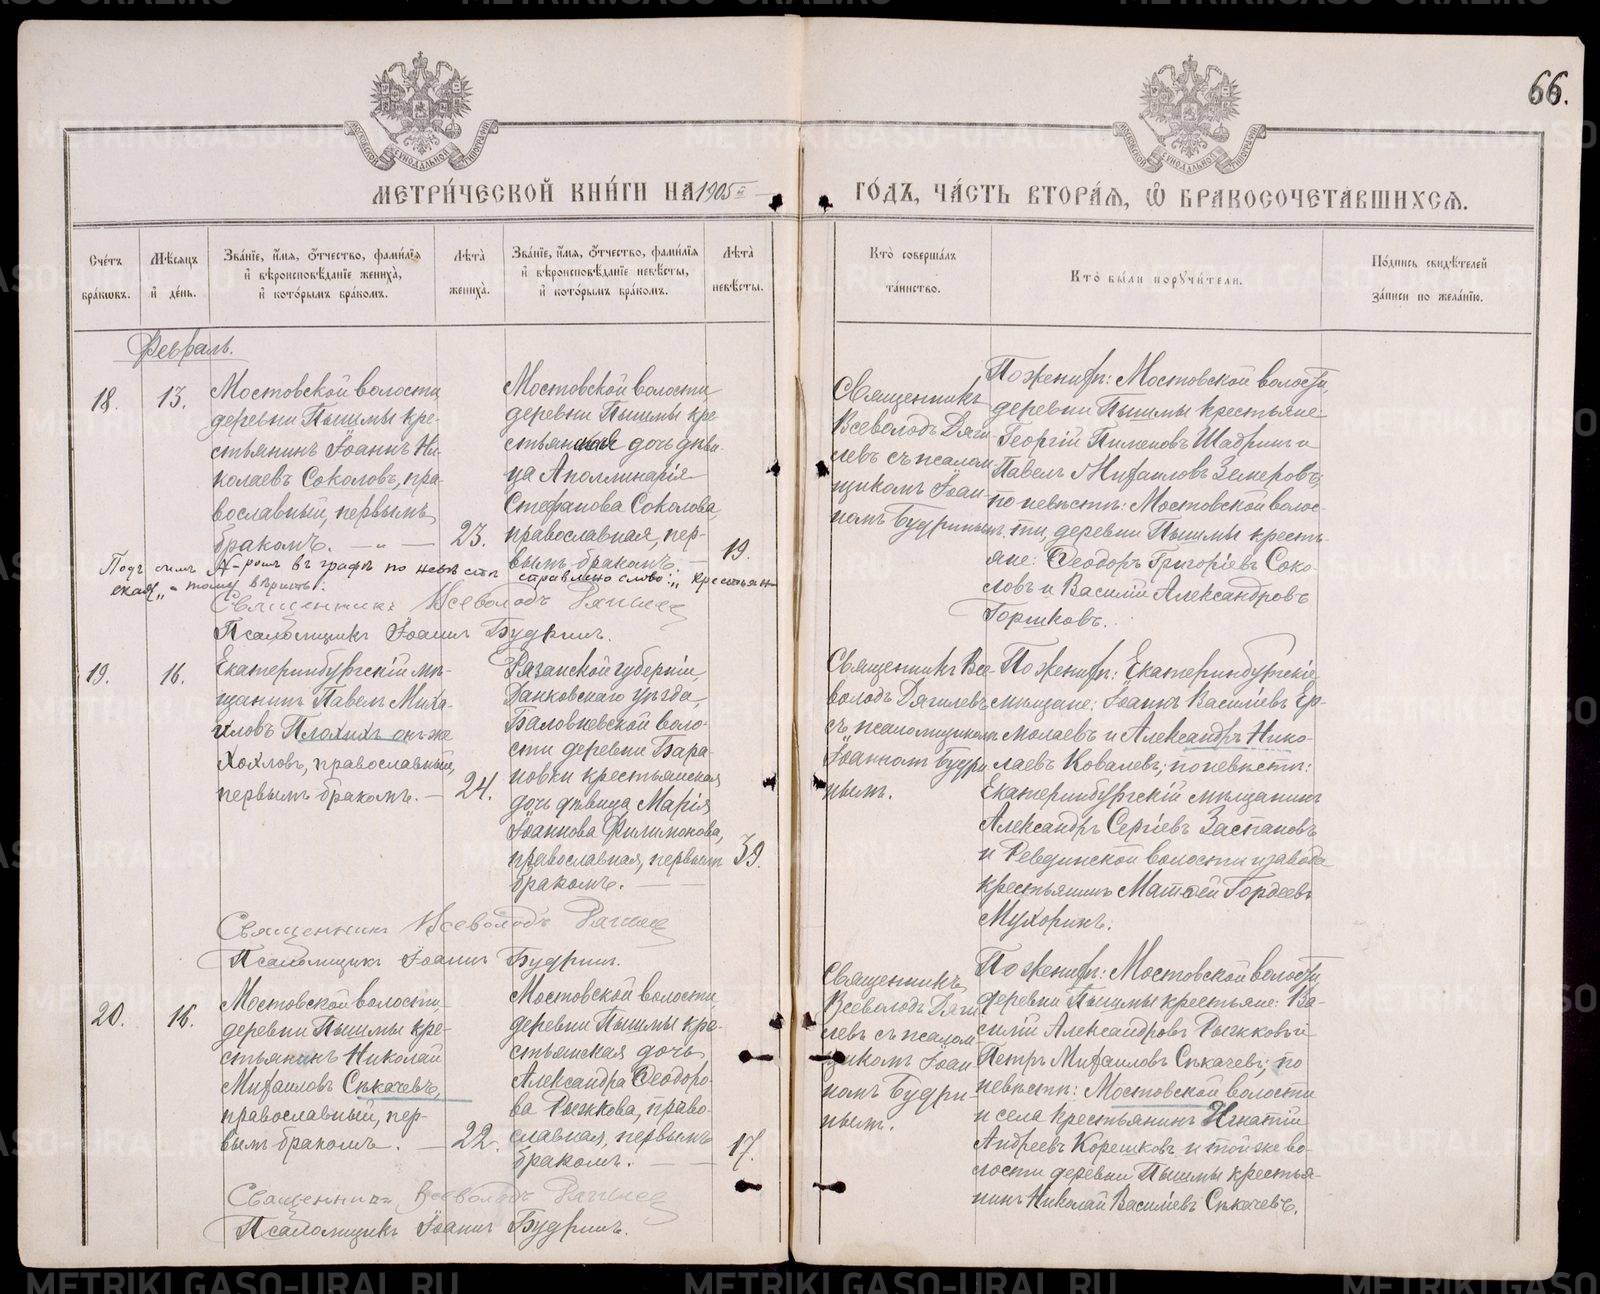 66.
МОСКОВСКОЙ СУНОДАЛЬНОЙ ТИПОГРАФІИ
МОСКОВСКОЙ СУНОДАЛЬНОЙ ТИПОГРАФІИ
МЕТРИ́ЧЕСКОЙ КНИ́ГИ НА 1905 й
ГО́ДЪ, ЧА́СТЬ ВТОРА́Я, Ѽ БРАКОСОЧЕТА́ВШИХСЯ.
Сче́тъ
бра́ковъ.
Мѣ́сяцъ
и҆ де́нь.
Зва́нїе, и҆́мя, ѻ҆́тчество, фами́лїя
и҆ вѣроисповѣ́данїе жениха̀,
и҆ кото́рымъ бра́комъ.
Лѣ́та
жениха̀.
Зва́нїе, и҆́мя, ѻ҆́тчество, фами́лїя
и҆ вѣроисповѣ́данїе невѣ́сты,
и҆ кото́рымъ бра́комъ.
Лѣ́та
невѣ́сты.
Кто̀ соверша́лъ
та́инство.
Кто̀ бы́ли поручи́тели.
По́дпись свидѣ́телей
за́писи по жела́нїю.
Февраль.
18.
13.
Мостовской волости
деревни Пышмы кре-
стьянинъ Іоаннъ Ни-
колаевъ Соколовъ, пра-
вославный, первымъ
бракомъ. — „ —
23.
Мостовской волости
деревни Пышмы кре
стьянская дочь дѣви
ца Аполлинарія
Стефанова Соколова,
православная, пер-
вымъ бракомъ. —
19.
Священникъ
Всеволодъ Дяги
левъ съ псалом
щикомъ Іоан-
номъ Будринымъ.
По женихѣ: Мостовской волости,
деревни Пышмы крестьяне
Георгій Пименовъ Шадринъ и
Павелъ Михаиловъ Земеровъ;
по невѣстѣ: Мостовской волос-
ти, деревни Пышмы кресть-
яне: Ѳеодоръ Григоріевъ Соко-
ловъ и Василій Александровъ
Горшковъ.
Подъ симъ №-ромъ въ графѣ по невѣстѣ справлено слово: „крестьян
ская„ – тому вѣрить.
Священникъ Всеволодъ Дягилев
Псаломщикъ Іоаннъ Будринъ.
19.
16.
Екатеринбургскій мѣ-
щанинъ Павелъ Миха-
иловъ Плохихъ онъ же
Хохловъ, православный,
первымъ бракомъ. —
24.
Рязанской губерніи,
Данковскаго уѣзда,
Баловневской воло-
сти деревни Бара-
новки крестьянская
дочь дѣвица Марія
Іоаннова Филимонова,
православная, первымъ
бракомъ. — —
39.
Священникъ Все
володъ Дягилевъ
съ псаломщикомъ
Іоанномъ Будри
нымъ.
По женихѣ: Екатеринбургскіе
мѣщане: Іоаннъ Василіевъ Ер-
молаевъ и Александръ Нико-
лаевъ Ковалевъ; по невѣстѣ:
Екатеринбургскій мѣщанинъ
Александръ Сергіевъ Заспановъ
и Ревдинской волости и завода
крестьянинъ Матѳей Гордеевъ
Мухоринъ.
Священникъ Всеволодъ Дягилев
Псаломщикъ Іоаннъ Будринъ.
20.
16.
Мостовской волости,
деревни Пышмы кре-
стьянинъ Николай
Михаиловъ Сѣкачевъ,
православный, пер-
вымъ бракомъ. —
22.
Мостовской волости
деревни Пышмы кре-
стьянская дочь
Александра Ѳеодоро-
ва Рыжкова, право-
славная, первымъ
бракомъ. — —
17.
Священникъ
Всеволодъ Дяги
левъ съ псалом
щикомъ Іоан
номъ Будри-
нымъ.
По женихѣ: Мостовской волости,
деревни Пышмы крестьяне: Ва-
силій Александровъ Рыжковъ и
Петръ Михаиловъ Сѣкачевъ; по
невѣстѣ: Мостовской волости
и села крестьянинъ Игнатій
Андреевъ Корешковъ и той же во-
лости деревни Пышмы крестья-
нинъ Николай Василіевъ Сѣкачевъ.
Священникъ Всеволодъ Дягилев
Псаломщикъ Іоаннъ Будринъ.
METRIKI.GASO-URAL.RU
METRIKI.GASO-URAL.RU
METRIKI.GASO-URAL.RU